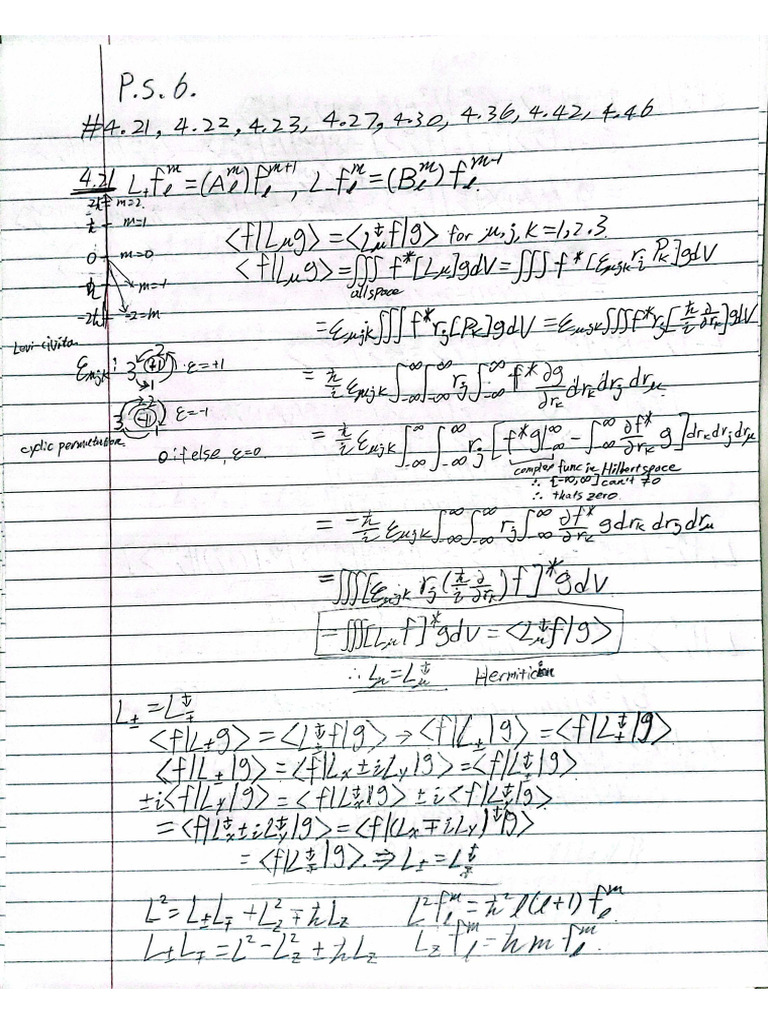 P.S. 6.
#4.21, 4.22, 4.23, 4.27, 4.30, 4.36, 4.42, 4.46
4.21 L₊fₗᵐ = (Aₗᵐ)fₗᵐ⁺¹, L₋fₗᵐ = (Bₗᵐ)fₗᵐ⁻¹
2ħ m=2.
ħ m=1
0 m=0
-ħ m=-1
-2ħ -2=m
<f|L_μ g> = <L_μ† f|g> for μ,j,k = 1,2,3
<f|L_μ g> = ∭ f*[L_μ]g dV = ∭ f*[ε_μjk r_j P_k]g dV
all space
= ε_μjk ∭ f* r_j [P_k]g dV = ε_μjk ∭ f* r_j [ħ/i ∂/∂r_k]g dV
Levi-civita
ε_μjk : 3 2 +1 1 ε=+1
3 2 -1 1 ε=-1
cyclic permutation
0 if else, ε=0
= ħ/i ε_μjk ∫_-∞^∞ ∫_-∞^∞ r_j ∫_-∞^∞ f* ∂g/∂r_k dr_k dr_j dr_μ
= ħ/i ε_μjk ∫_-∞^∞ ∫_-∞^∞ r_j [f*g|_-∞^∞ - ∫_-∞^∞ ∂f*/∂r_k g] dr_k dr_j dr_μ
complex func in Hilbert space
∴ [-∞,∞] can't ≠0
∴ thats zero
= -ħ/i ε_μjk ∫_-∞^∞ ∫_-∞^∞ r_j ∫_-∞^∞ ∂f*/∂r_k g dr_k dr_j dr_μ
= ∭[ε_μjk r_j (ħ/i ∂/∂r_k) f]* g dV
= ∭[L_μ f]* g dV = <L_μ† f|g>
∴ L_μ = L_μ† Hermitian
L_± = L_∓†
<f|L_± g> = <L_±† f|g> → <f|L_±|g> = <f|L_±†|g>
<f|L_±|g> = <f|L_x ± iL_y|g> = <f|L_±†|g>
±i<f|L_y|g> = <f|L_x†|g> ± i<f|L_y†|g>
= <f|L_x† ± iL_y†|g> = <f|(L_x ∓ iL_y)†|g>
= <f|L_∓†|g>. ⇒ L_± = L_∓†
L² = L_± L_∓ + L_z² ∓ ħL_z L² fₗᵐ = ħ² l(l+1) fₗᵐ
L_± L_∓ = L² - L_z² ± ħL_z L_z fₗᵐ = ħm fₗᵐ.